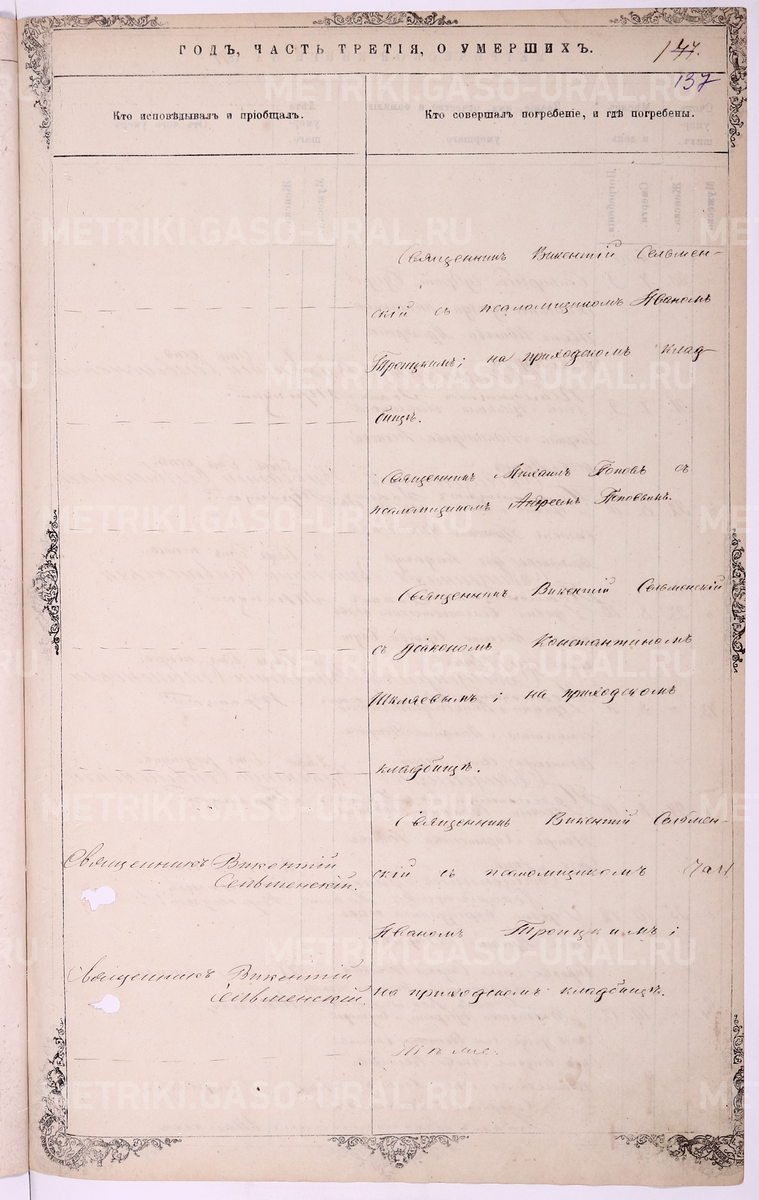 ГОДЪ, ЧАСТЬ ТРЕТІЯ, О УМЕРШИХЪ.
137
Кто исповѣдывалъ и пріобщалъ.
Кто совершалъ погребеніе, и гдѣ погребены.
METRIKI.GASO-URAL.RU
Священникъ Викентій Сельмен-
скій съ псаломщикомъ Иваномъ
Троицкимъ; на приходскомъ клад-
бищѣ.
Священникъ Михаилъ Поповъ съ
псаломщикомъ Андреемъ Поповымъ.
Священникъ Викентій Сельменскій
съ діакономъ Константиномъ
Шкляевымъ; на приходскомъ
кладбищѣ.
Священникъ Викентій Сельмен-
скій съ псаломщикомъ
Иваномъ Троицкимъ;
на приходскомъ кладбищѣ.
Тѣ же.
Священникъ Викентій
Сельменскій.
Священникъ Викентій
Сельменскій.